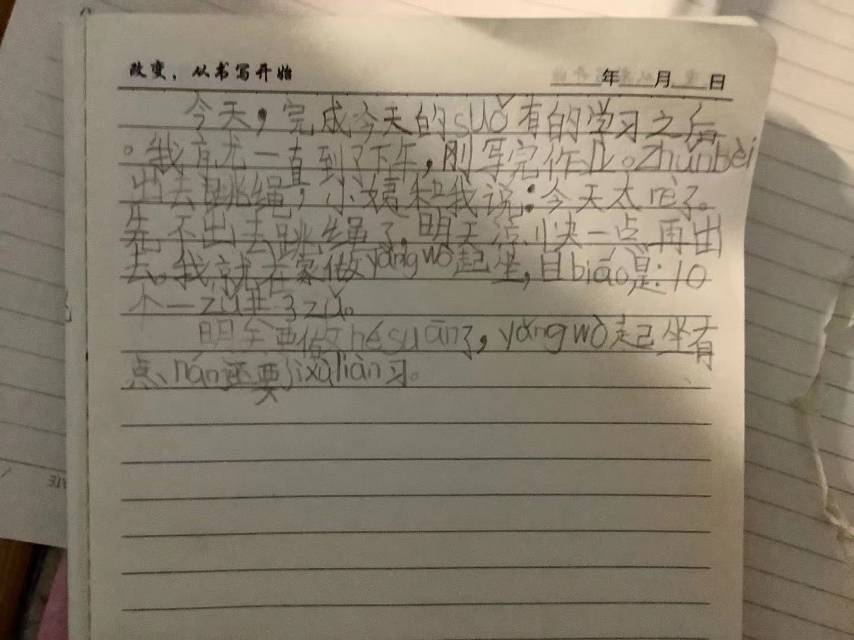 改变，从书写开始
年 月 日
今天，完成今天的suǒ有的学习之后
。我 一直到了下午，刚写完作业。zhǔnbèi
出去跳绳，小姨和我说：今天太 了。
先不出去跳绳了，明天凉快一点再出
去。我就在家做yǎngwò起坐，目biāo是：10
个一zǔ 3zǔ。
明 要做hésuān了，yǎngwò起坐有
点nán还要jìxùliàn习。